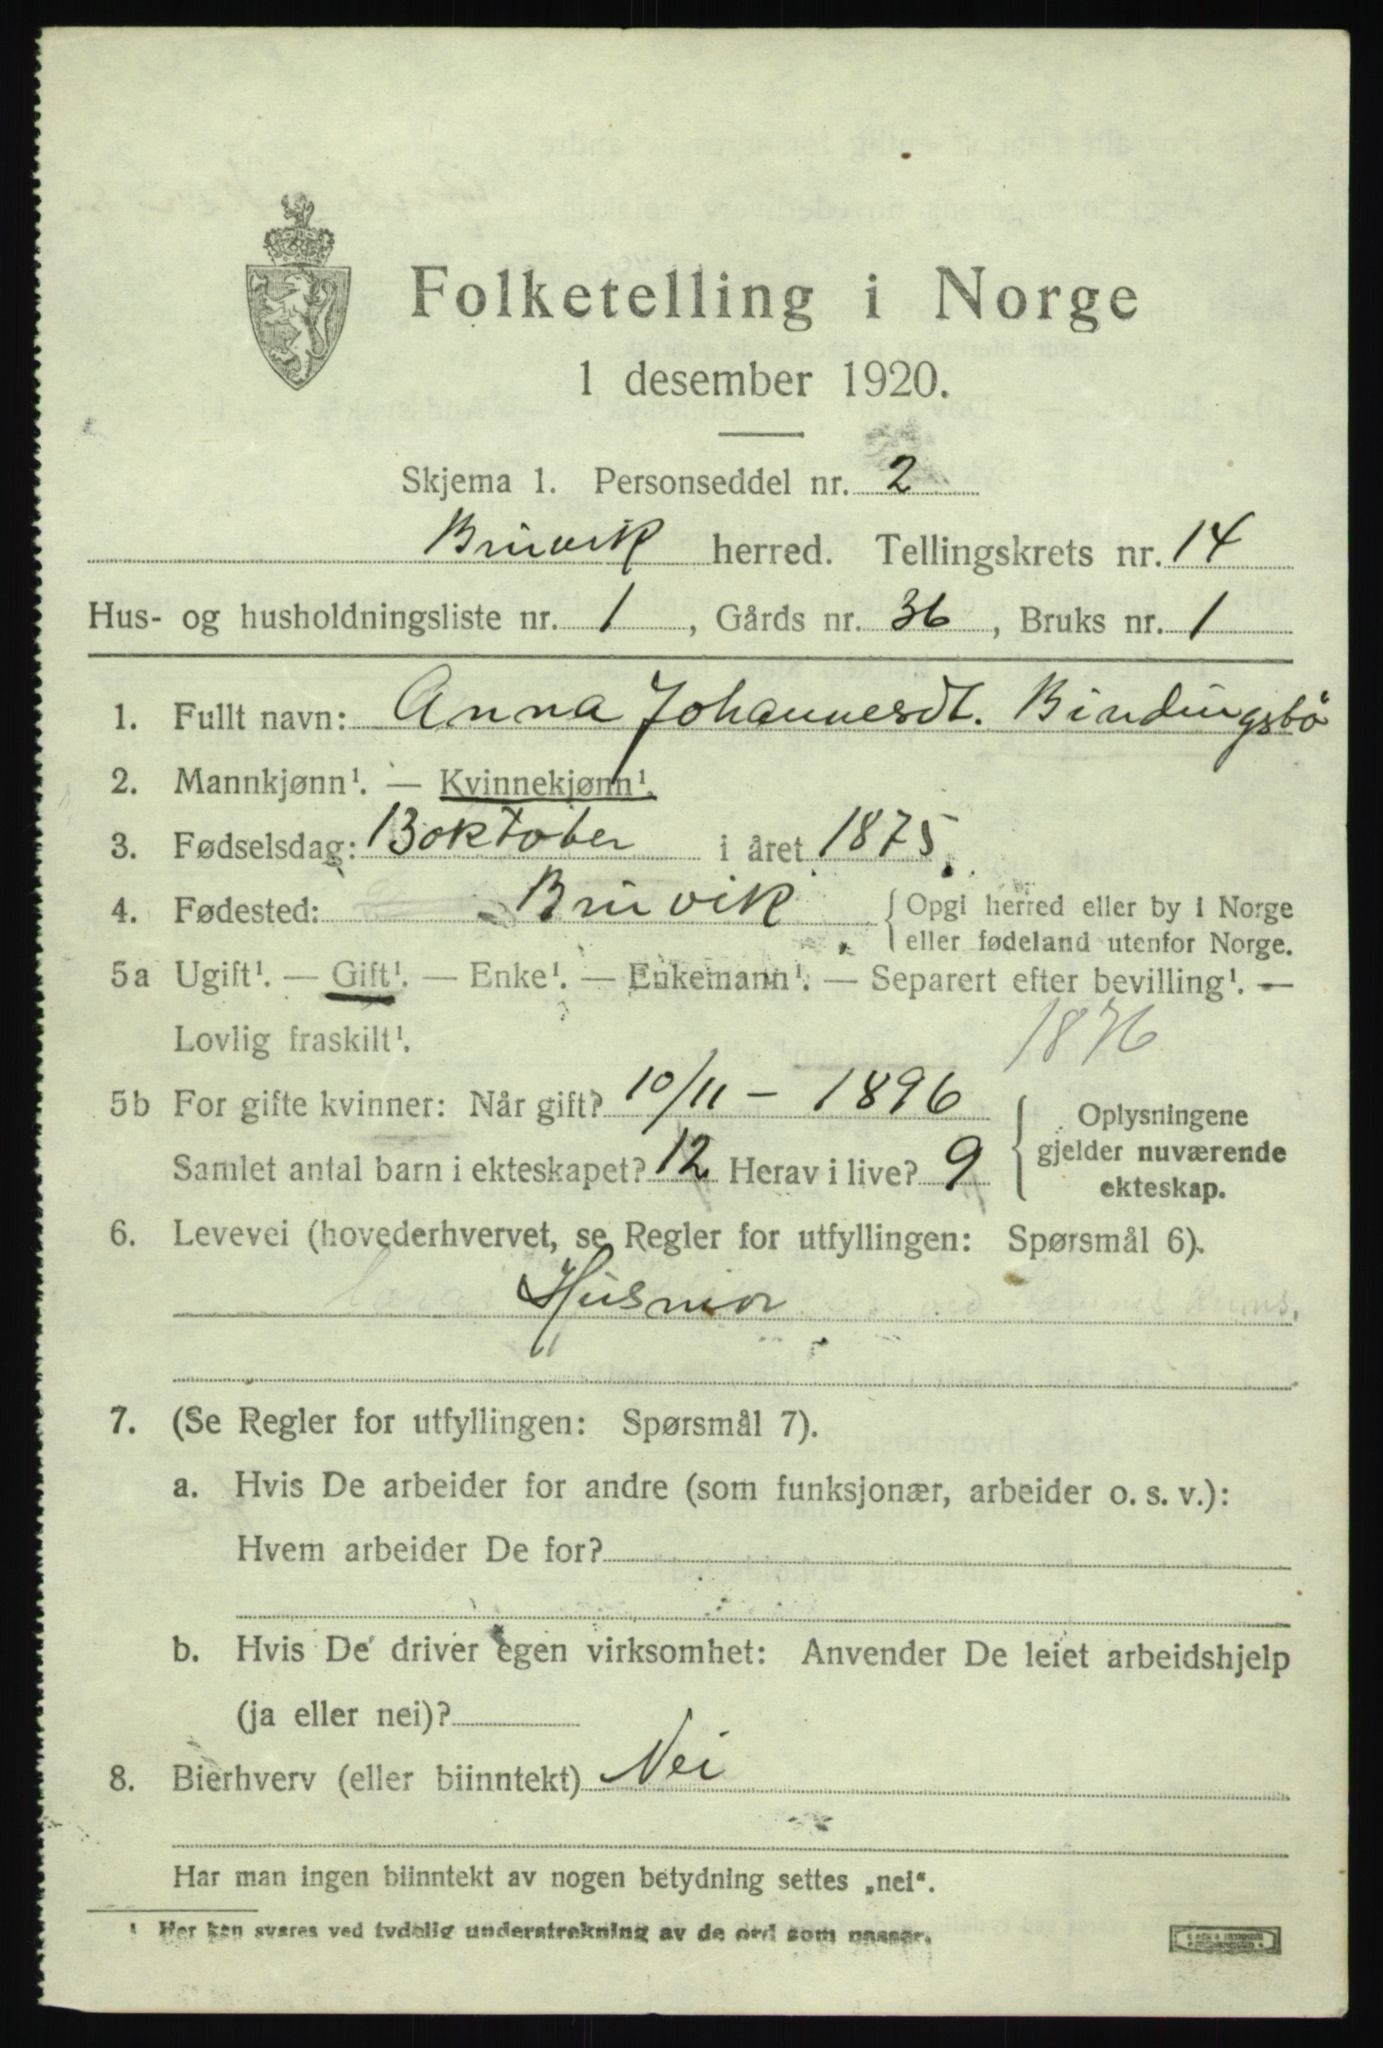 Folketelling i Norge
1 desember 1920.
Skjema 1. Personseddel nr. 2
Bruvik herred. Tellingskrets nr. 14
Hus- og husholdningsliste nr. 1, Gårds nr. 36, Bruks nr. 1
1. Fullt navn: Anna Johannesdt. Bindingsbø
2. Mannkjønn¹. — Kvinnekjønn¹.
3. Fødselsdag: 13 oktober i året 1875.
4. Fødested: Bruvik { Opgi herred eller by i Norge
eller fødeland utenfor Norge.
5a Ugift¹. — Gift¹. — Enke¹. — Enkemann¹. — Separert efter bevilling¹. —
Lovlig fraskilt¹. 1876
5b For gifte kvinner: Når gift? 10/11 – 1896 { Oplysningene
gjelder nuværende
ekteskap.
Samlet antal barn i ekteskapet? 12 Herav i live? 9
6. Levevei (hovederhvervet, se Regler for utfyllingen: Spørsmål 6).
Husmor
7. (Se Regler for utfyllingen: Spørsmål 7).
a. Hvis De arbeider for andre (som funksjonær, arbeider o. s. v.):
Hvem arbeider De for?
b. Hvis De driver egen virksomhet: Anvender De leiet arbeidshjelp
(ja eller nei)?
8. Bierhverv (eller biinntekt) Nei
Har man ingen biinntekt av nogen betydning settes „nei“.
¹ Her kan svares ved tydelig understrekning av de ord som passer.